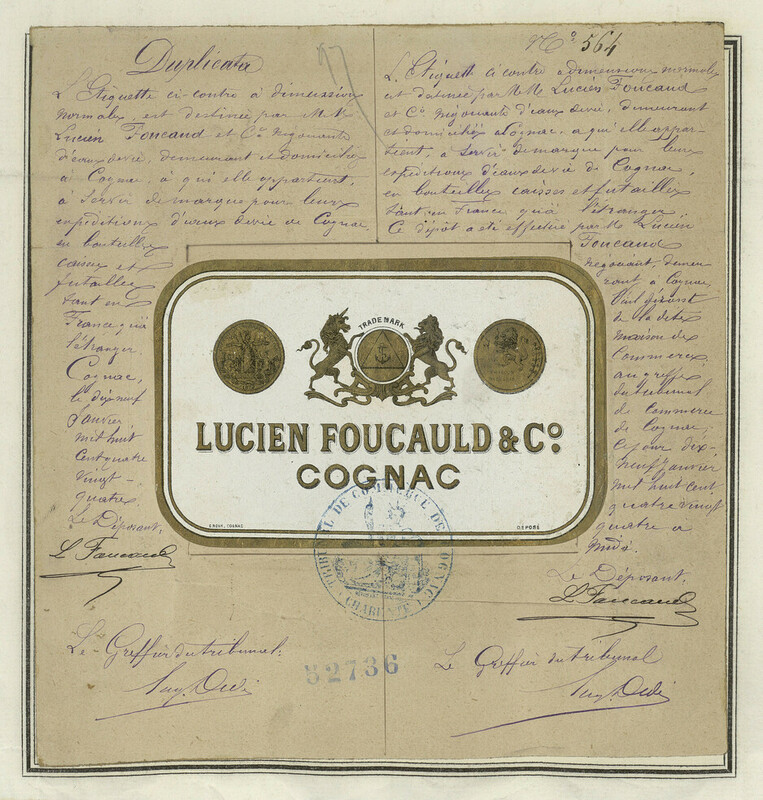 Duplicata
L'Etiquette ci-contre à dimension
normale, est destinée par M.M.
Lucien Foucaud et Cie négociants
d'eaux de vie, demeurant et domiciliés
à Cognac, à qui elle appartient,
à servir de marque pour leurs
expéditions d'eaux de vie de Cognac,
en bouteilles
caisses et
futailles
tant en
France qu'à
l'étranger.
Cognac,
le dix neuf
Janvier
mil huit
cent quatre
vingt-
quatre.
Le Déposant,
L Foucaud
Le Greffier du tribunal:
No 564
L'Etiquette ci contre à dimensions normales
est destinée par M.M. Lucien Foucaud
et Cie négociants d'eaux de vie, demeurant
et domiciliés à Cognac, à qui elle appar-
tient, à servir de marque pour leurs
expéditions d'eaux de vie de Cognac,
en bouteilles caisses et futailles
tant en France qu'à l'étranger.
Ce dépôt a été effectué par M. Lucien
Foucaud
négociant, demeu-
rant à Cognac,
l'un gérant
de la dite
maison de
Commerce,
au greffe
du tribunal
de Commerce
de Cognac,
ce jour dix-
neuf Janvier
mil huit cent
quatre vingt
quatre à
midi.
Le Déposant.
L Foucaud
Le Greffier du tribunal
TRADE MARK
LUCIEN FOUCAULD & Co.
COGNAC
DEPOSÉ
TRIBUNAL DE COMMERCE DE COGNAC
(CHARENTE)
52736